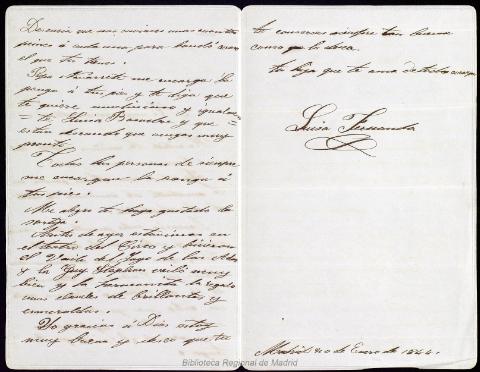 Desearía que nos enviaras unas cuantas
á cada una para
el que tu tienes.
Pepa Navarrete me encarga la
ponga á tus pies y te diga que
te quiere muchisimo y igualmen=
=te Luisa y que
están deseando que vengas muy
pronto.
Todas las personas de siempre
me encargan las ponga á
tus pies.
Me alegro te haya gustado la
sortija.
Antes de ayer estuvimos en
el teatro del Circo y hicieron
el Vaile del Lago de las Adas
y la Guy Stephan vailó muy
bien y la hermanita la regaló
unos de brillantes y
esmeraldas.
Yo gracias á Dios estoy
muy buena y deseo que tu
te conserves siempre tan buena
como yo lo deseo.
tu hija que te ama de todo corazon
Luisa Fernanda
Madrid 10 de Enero de 1844.
Biblioteca Regional de Madrid